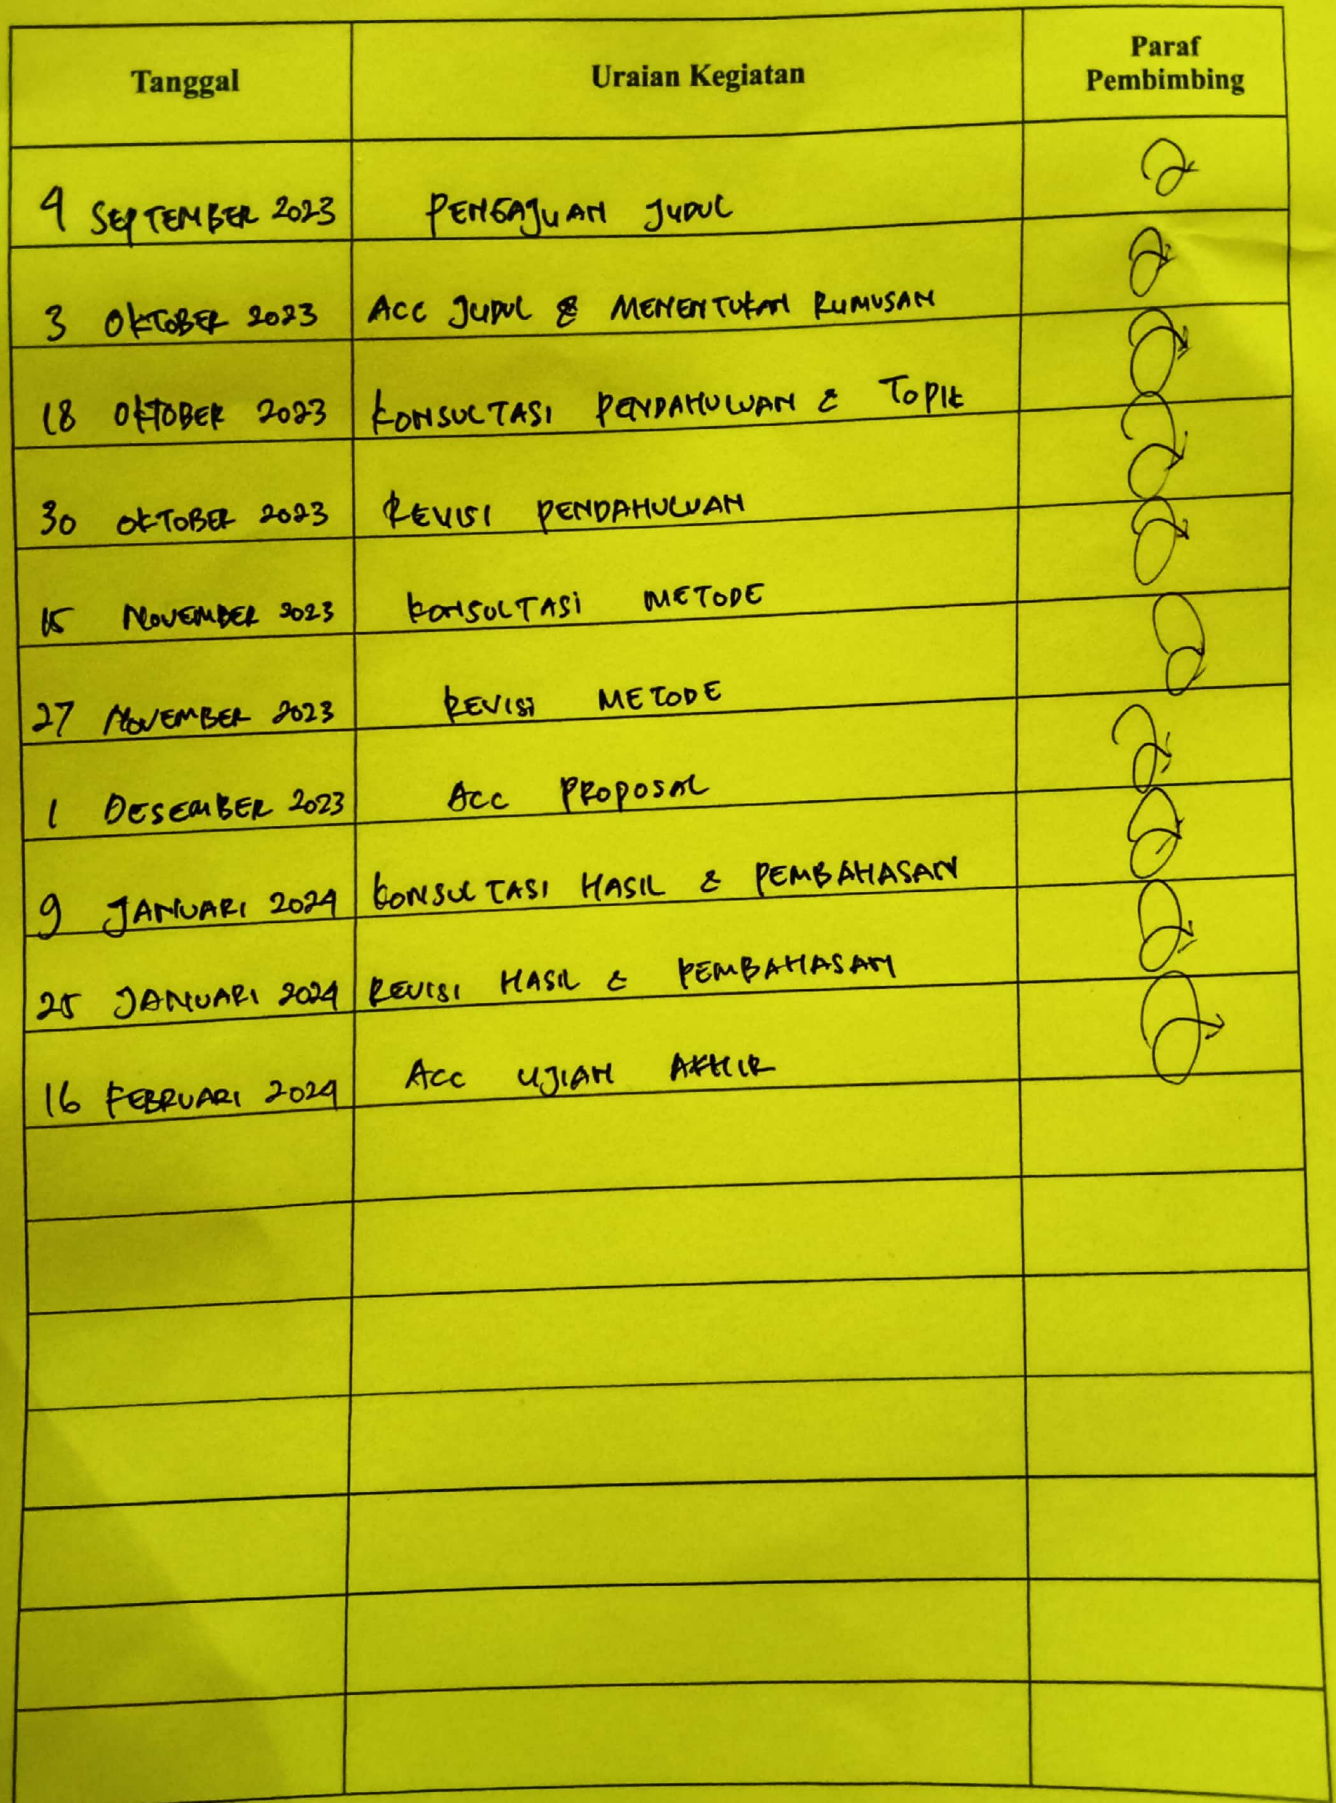 Tanggal Uraian Kegiatan Paraf
Pembimbing
4 SEPTEMBER 2023 PENGAJUAN JUDUL
3 OKTOBER 2023 ACC JUDUL & MENENTUKAN RUMUSAN
18 OKTOBER 2023 KONSULTASI PENDAHULUAN & TOPIK
30 OKTOBER 2023 REVISI PENDAHULUAN
15 NOVEMBER 2023 KONSULTASI METODE
27 NOVEMBER 2023 REVISI METODE
1 DESEMBER 2023 ACC PROPOSAL
9 JANUARI 2024 KONSULTASI HASIL & PEMBAHASAN
25 JANUARI 2024 REVISI HASIL & PEMBAHASAN
16 FEBRUARI 2024 ACC UJIAN AKHIR